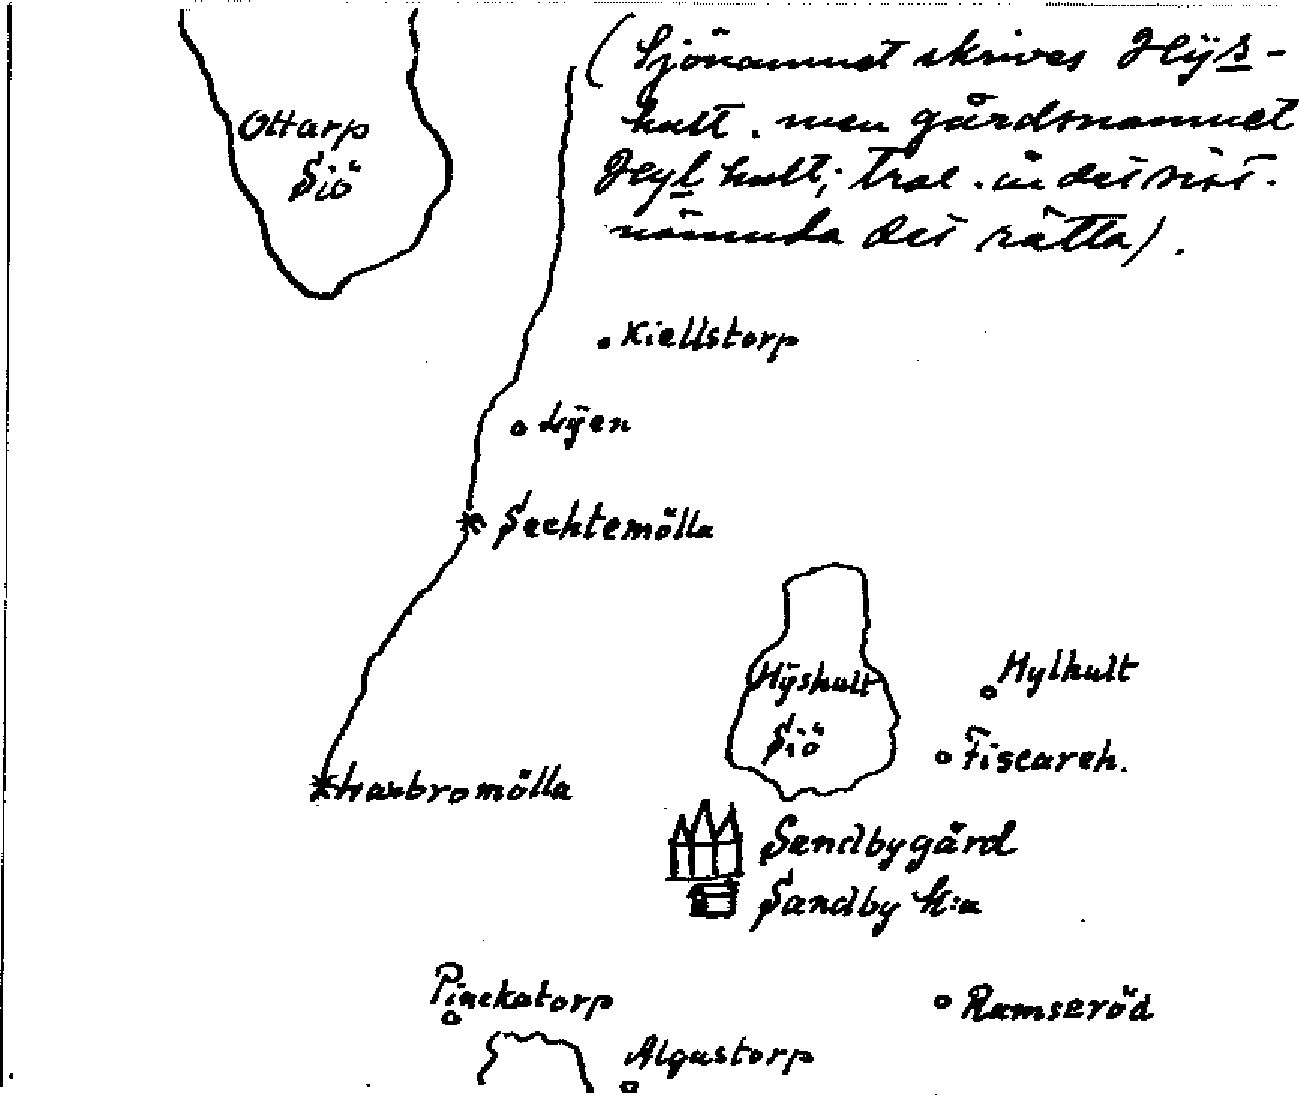 (Sjönamnet skrives Hÿs-
hult. men gårdsnamnet
Hylhult; trol. är det sist-
nämnda det rätta).
Ottarp
Siö
Kiellstorp
Lÿen
Sechtemölla
Hÿshult
Siö
Hylhult
Fiscareh.
Harbromölla
Sandbygård
Sandby K:a
Pinckatorp
Ramseröd
Algustorp